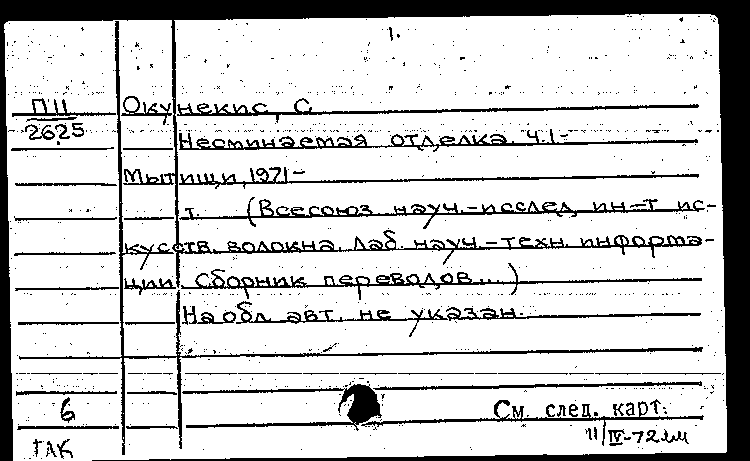 1.
П11
2625
Окунекис, С
Несминаемая отделка. Ч.1-
Мытищи, 1971-
т. (Всесоюз. науч.-исслед. ин-т ис-
кусств. волокна. Лаб. науч.-техн. информа-
ции. Сборник переводов...)
На обл. авт. не указан.
6
См. след. карт.
11/IV-72
ГАК